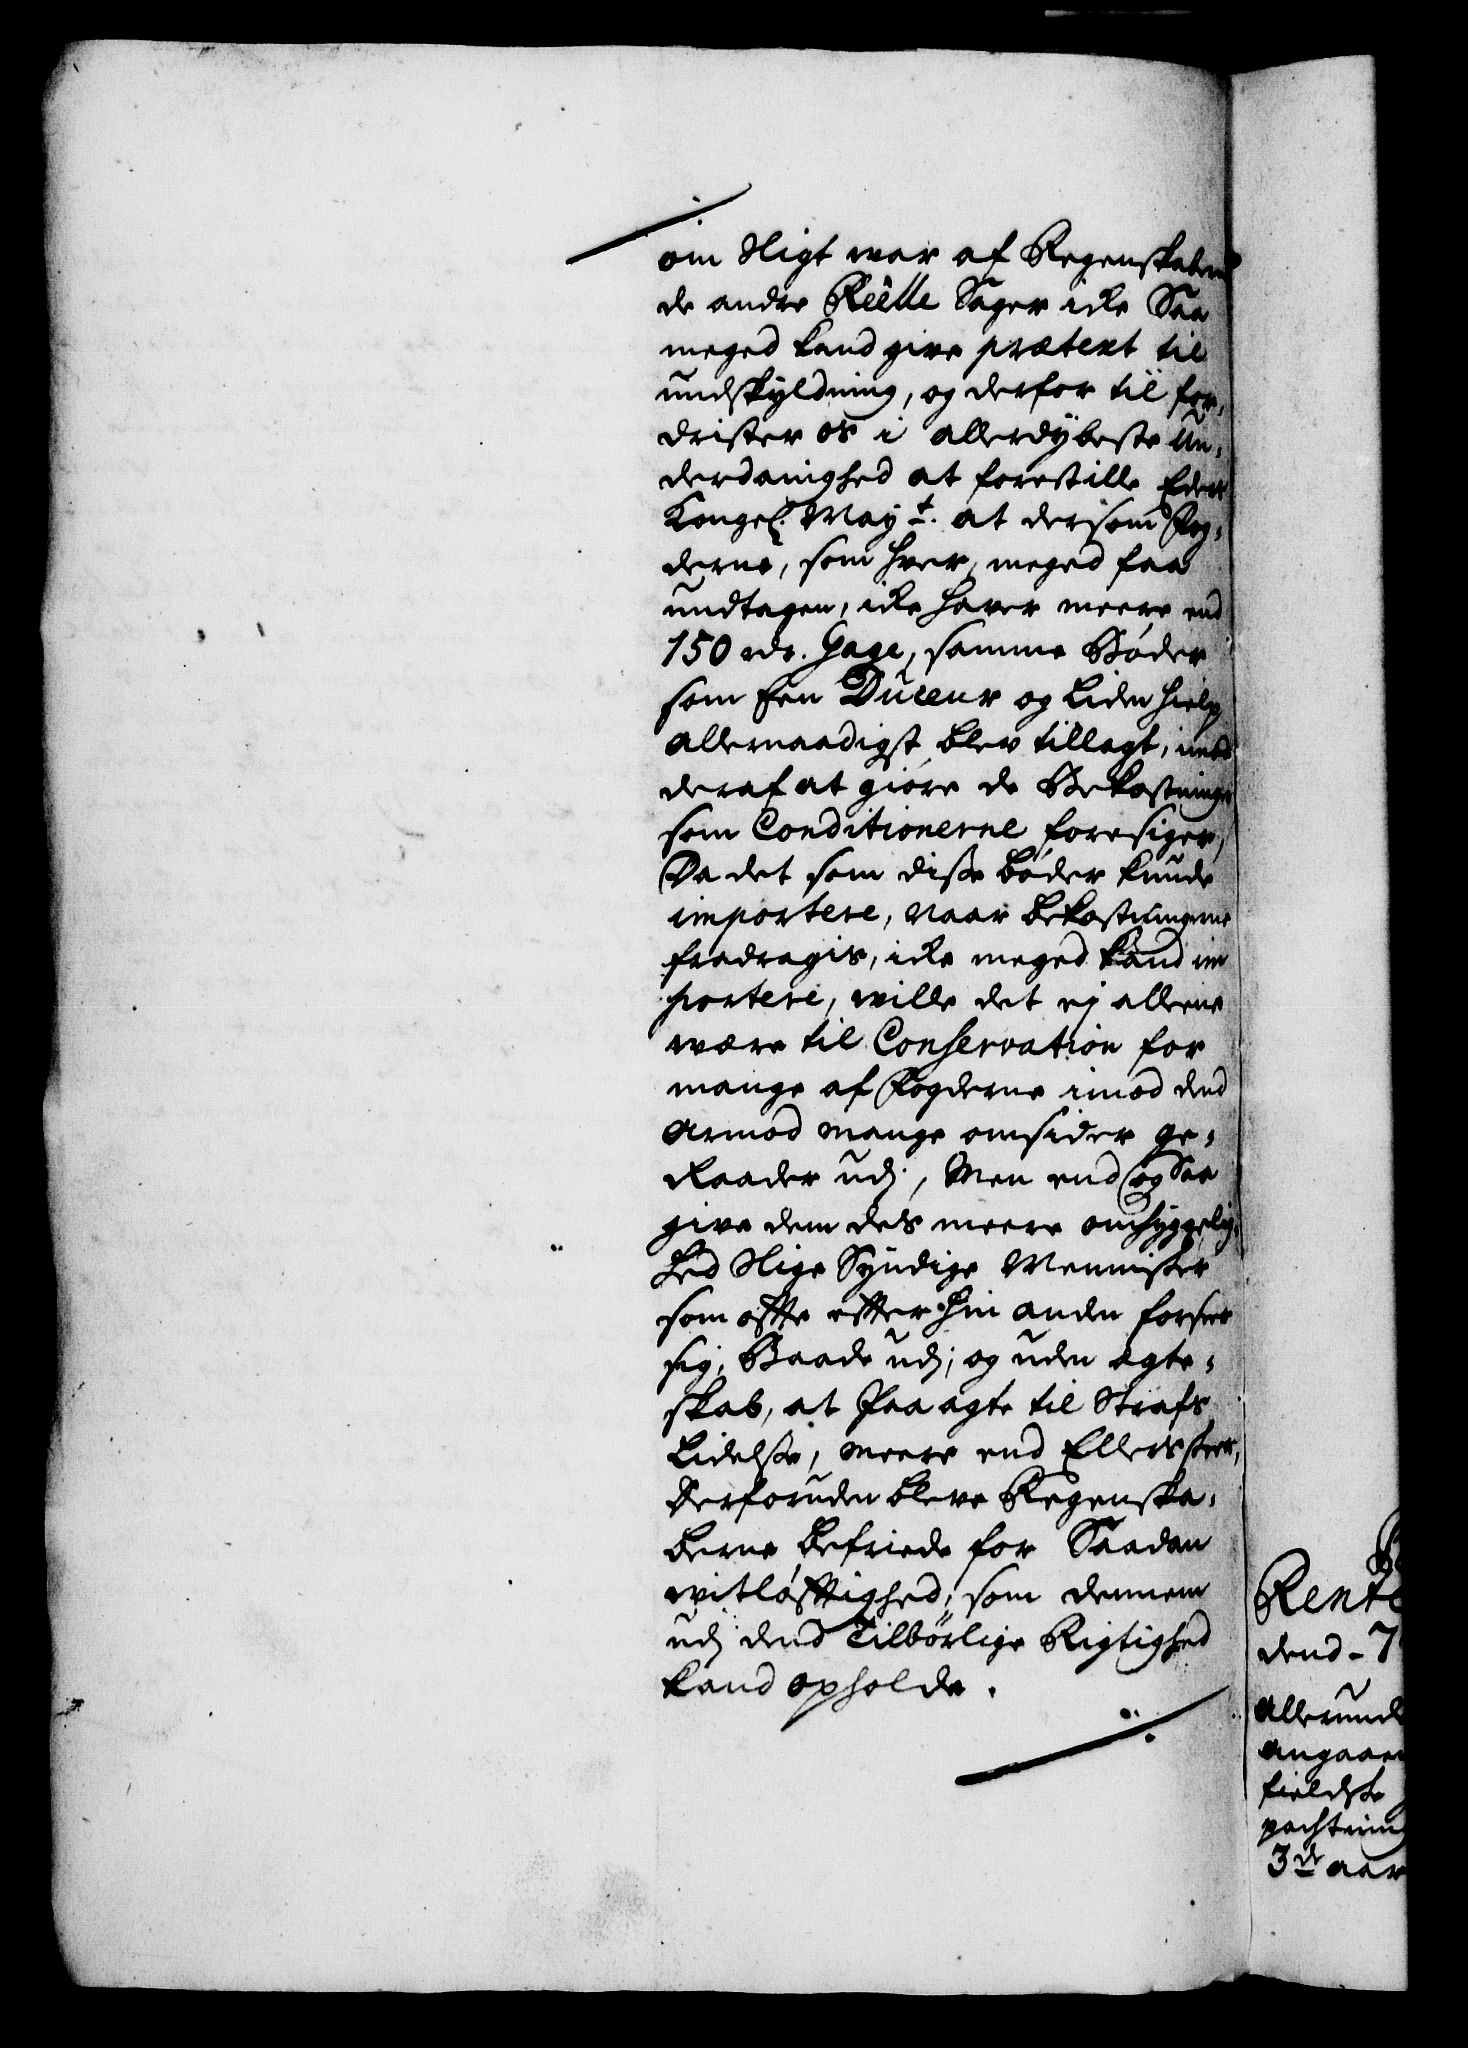 om Sligt war af Regenskaberne
de andre Reèlle Sager icke Saa
meged kand give prætext til
undskyldning, og derfor til for,
drister os i allerdÿbeste Un,
derdanighed at forestille Eders
Kongel. Mayt. at dersom Fog,
derne, som hver, meged faa
undtagen, icke haver meere end
150 rdr. Gage, samme Bøder
som Een Duceur og Liden hielp
allernaadigst blev tillagt, imod
deraf at giøre de Bekostninger
som Conditionerne foresiger,
Da det som disse bøder kunde
importere, Naar bekostningerne
fradragis, icke meged kand im
portere, wille det ej alleene
wære til Conservation for
mange af Fogderne imod dend
Armod mange omsider ge,
Raader udj, Men end og Saa
give dem des meere omhyggelig,
hed slige Syndige Mennisker
som offte effter hin anden forseer
sig, Baade udj, og uden ægte,
skab, at Paaagte til Strafs
Lidelse, meere end Ellers skeer,
Derforuden bleve Regenska,
berne befriede for Saadan
witløfftighed, som dennem
udj dend Tilbørlige Rigtighed
kand opholde.
Rente
dend - 7
Allerunde
angaaen
fieldske
pachtning
3de aar